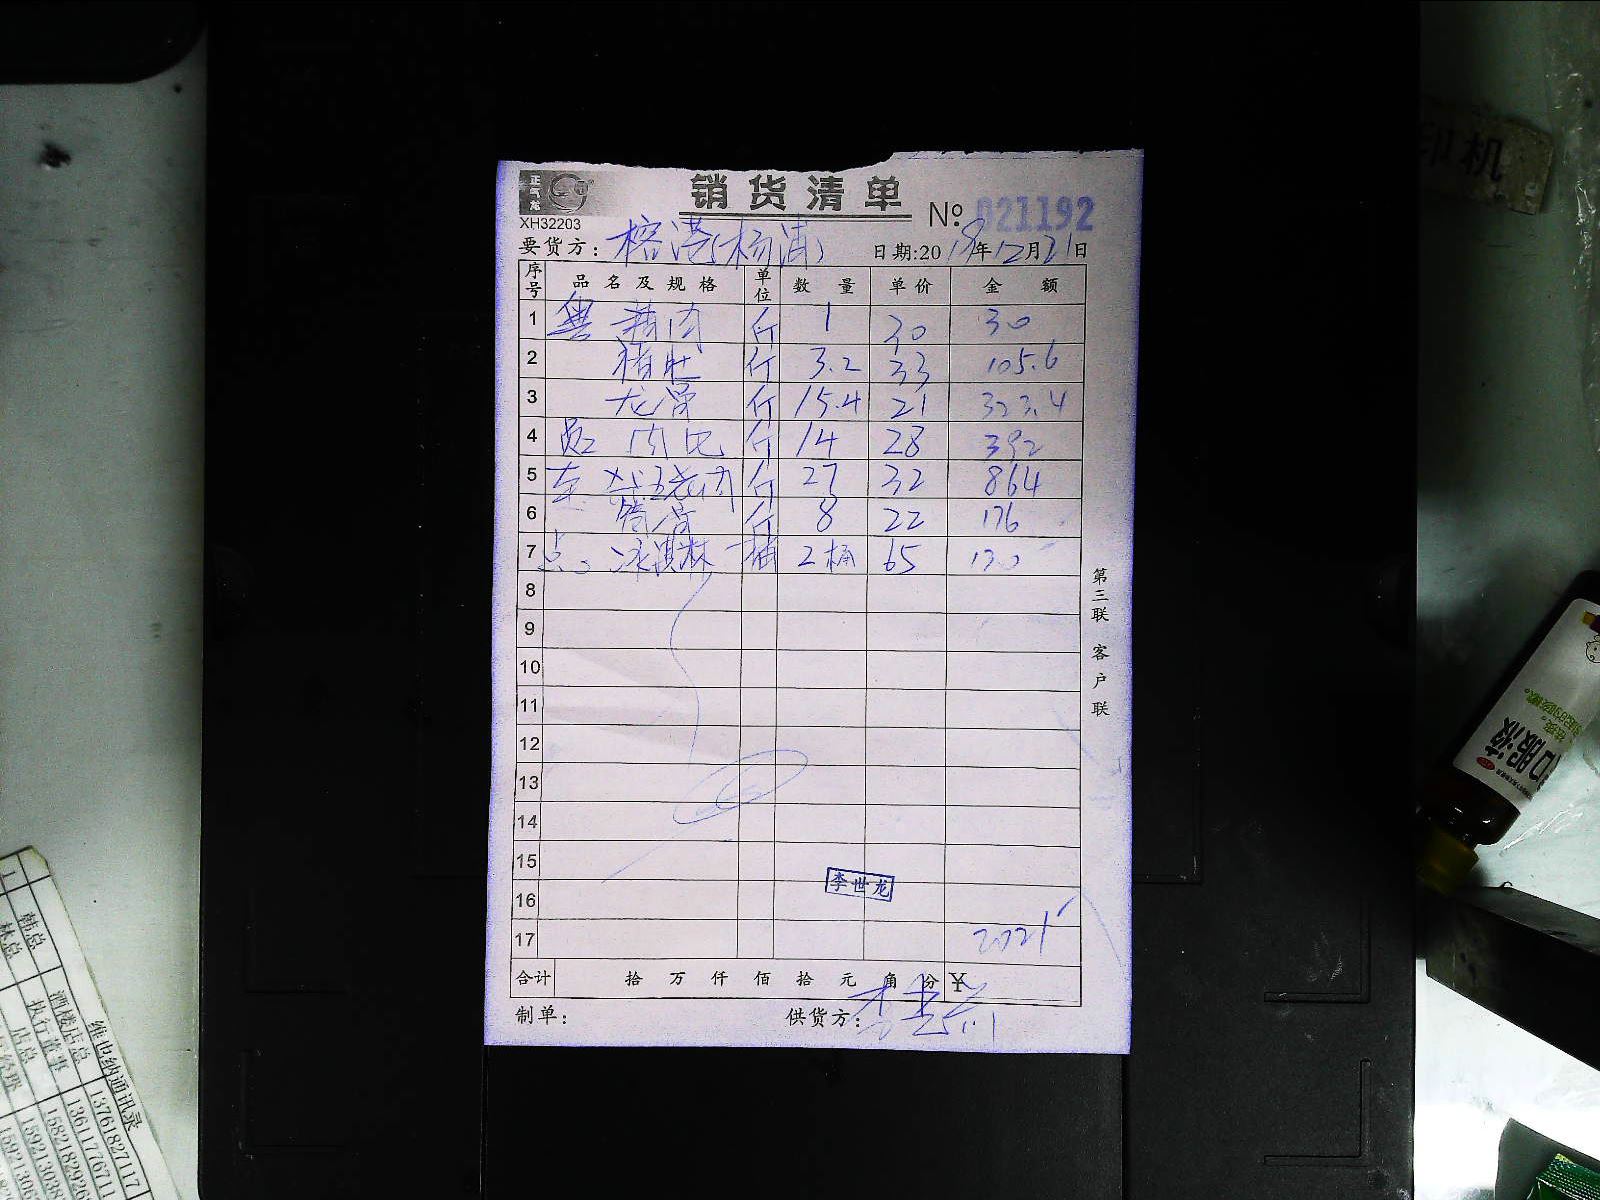 正成龙
销货清单
XH32203
No. 021192
要货方：榕港(杨浦)
日期:2018年12月21日
序号 品名及规格 单位 数量 单价 金额
1 粤 精肉 斤 1 30 30
2 猪肚 斤 3.2 33 105.6
3 龙骨 斤 15.4 21 323.4
4 肉 斤 14 28 392
5 东 五花肉 斤 27 32 864
6 筒骨 斤 8 22 176
7 点 冰淇淋 桶 2桶 65 130
8
9
10
11
12
13
14
15
李世龙
16
17 2021
合计 拾 万 仟 佰 拾 元 角 分 ¥
制单：
供货方：
第三联 客户联
印机
口服液
韩总
林总
酒楼店总
执行董事
店总
维也纳通讯录
13761827117